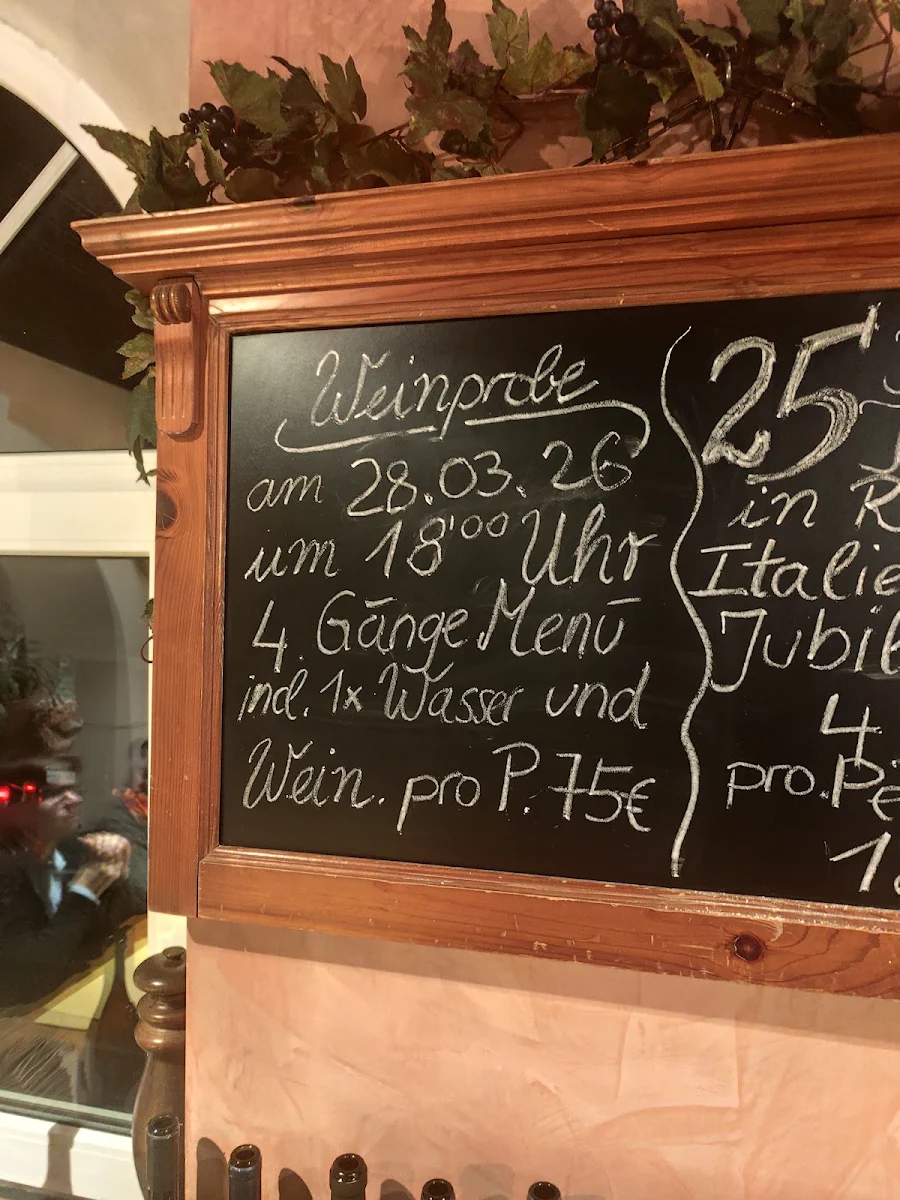 Weinprobe
am 28.03.26
um 18'00 Uhr
4. Gänge Menü
incl. 1x Wasser und
Wein. pro P. 75€
25
in
Italie
Jubil
4
pro.